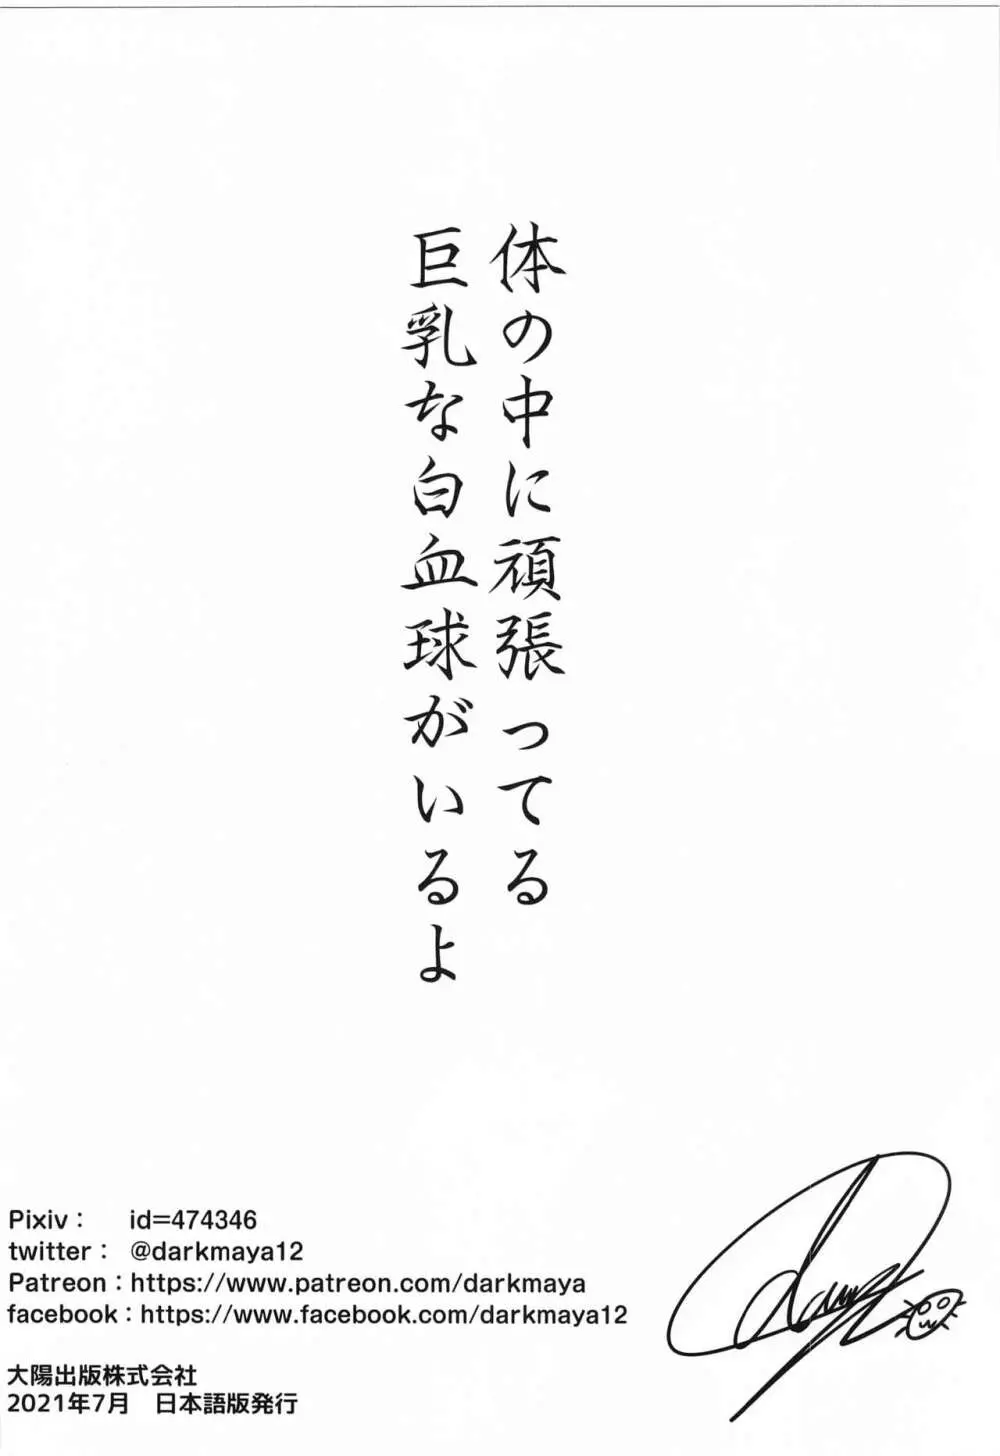 体の中に頑張ってる
巨乳な白血球がいるよ
Pixiv： id=474346
twitter： @darkmaya12
Patreon：https://www.patreon.com/darkmaya
facebook：https://www.facebook.com/darkmaya12
大陽出版株式会社
2021年7月　日本語版発行